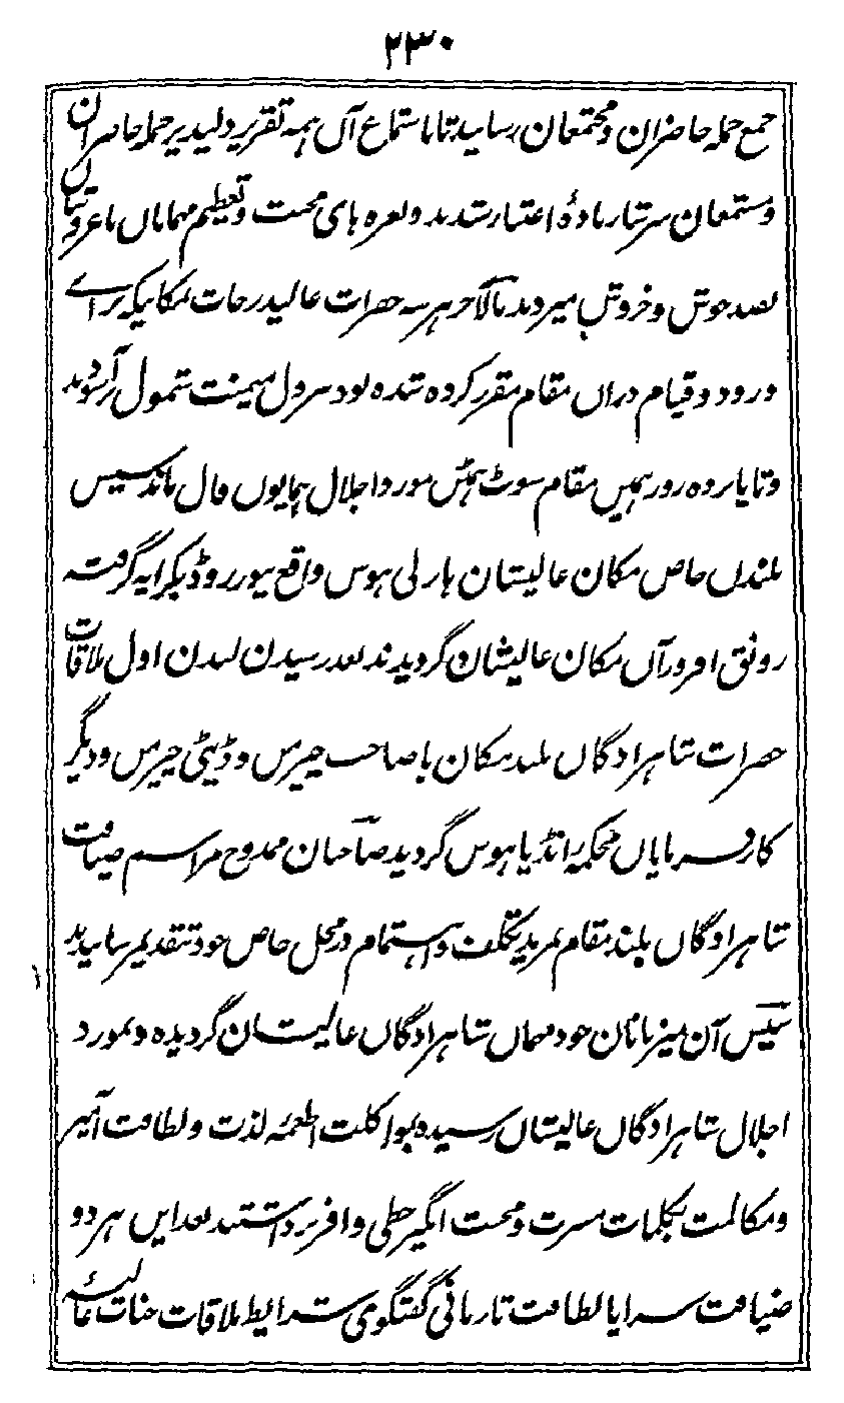 ۲۳۰
جمع جمله حاضران و مجتمعان رسانید تا باستماع آں ہمہ تقریر دلپذیر جمله حاضران
و مستمعان سرشار بادۂ اعتبار شدند و نعره های محبت و تعظیم مهمانان با عز و شان
بصد جوش و خروش میزدند بالآخر هر سه حضرات عالیدرجات بمکانیکه برائے
ورود و قیام دراں مقام مقرر کرده شده بود نزول میمنت شمول
و تا پانزده روز ہمیں مقام سوٹ ہمٹن مورد اجلال ہمایوں فال ماند سپس
بلندن خاص مکان عالیشان ہارلی ہوس واقع نیو روڈ بکرایہ گرفته
رونق افروز آں مکان عالیشان گردیدند بعد رسیدن لندن اول ملاقات
حضرات شاهزادگاں بلند مکان با صاحب چیرمن و ڈپٹی چیرمن و دیگر
کارفرمایاں محکمہ انڈیا ہوس گردید صاحبان ممدوح مراسم ضیافت
شاہزادگاں بلند مقام بمزید تکلف و اہتمام در محل خاص خود بتقدیم رسانیدند
سپس آن میزبانان خود مهماں شاہزادگاں عالیشان گردیده و بمورد
اجلال شاہزادگاں عالیشاں رسیده بمواکلت اطعمۂ لذت و لطافت آمیز
و مکالمت بکلمات مسرت و محبت انگیز حظی وافر برداشتند بعد ایں هر دو
ضیافت سراپا لطافت تا زمانی گفتگوی شرایط ملاقات جناب عالیہ